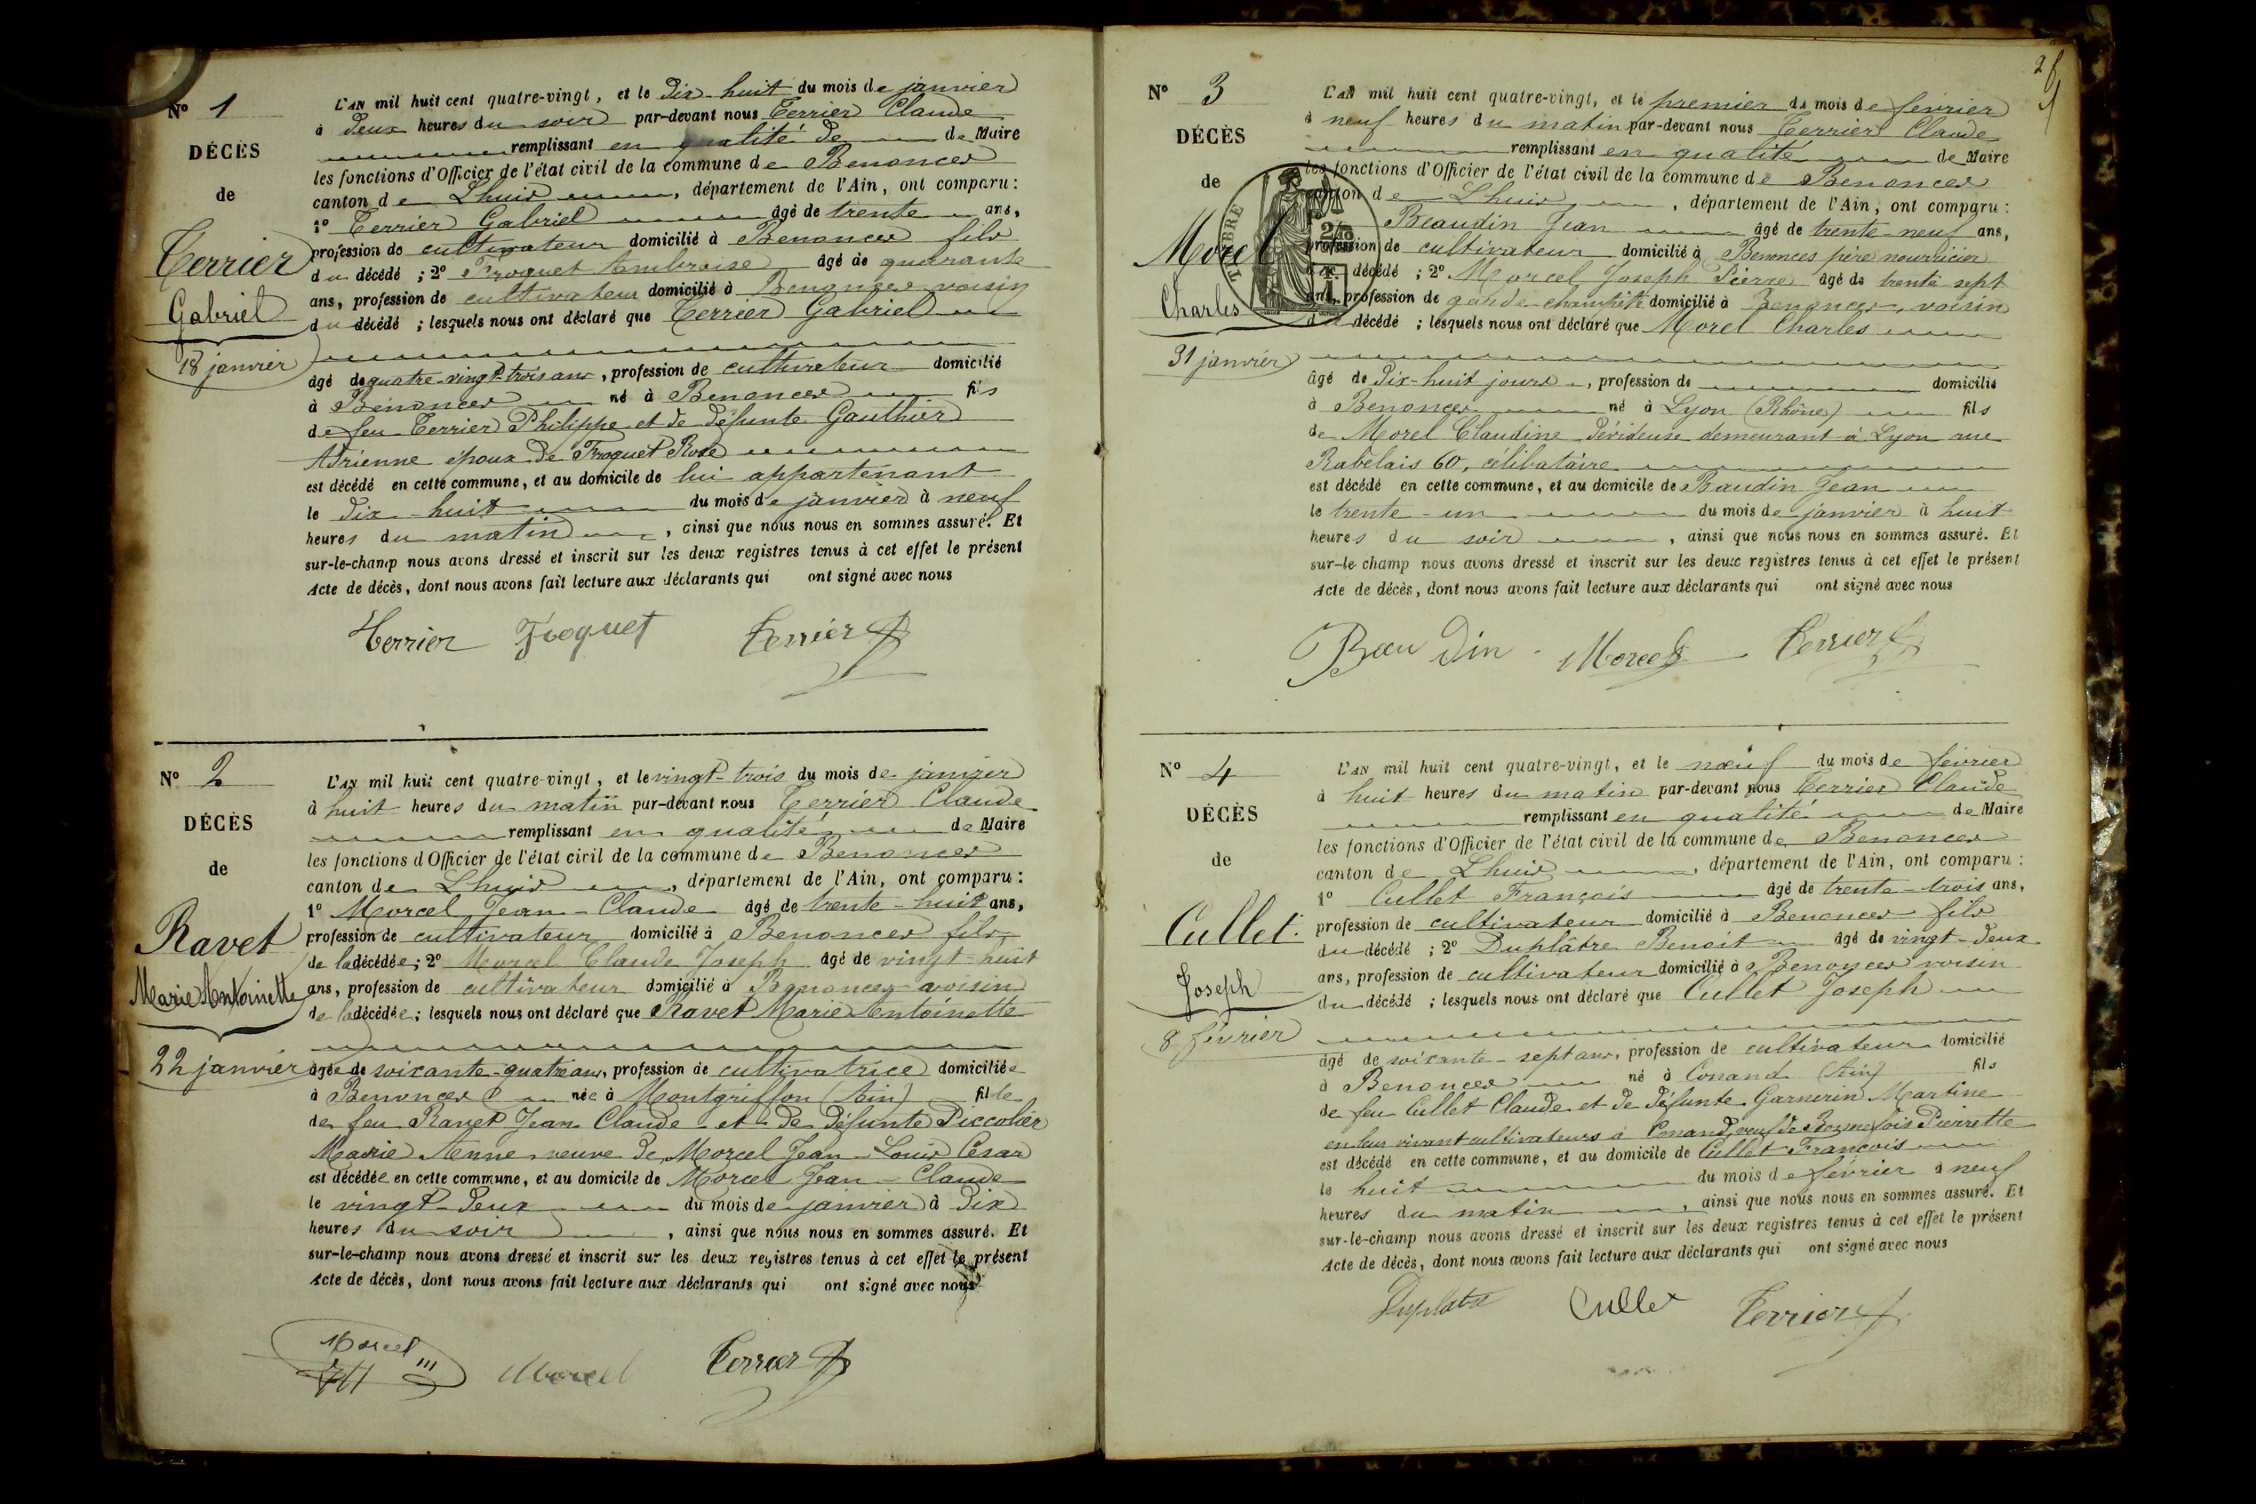 N° 1
DÉCÈS
de
Terrier
Gabriel
18 janvier
L'AN mil huit cent quatre-vingt, et le dix-huit du mois de janvier
à deux heures du soir par-devant nous Terrier Claude
remplissant en qualité de de Maire
les fonctions d'Officier de l'état civil de la commune de Benonces
canton de Lhuis, département de l'Ain, ont comparu :
1° Terrier Gabriel âgé de trente ans,
profession de cultivateur domicilié à Benonces fils
du décédé ; 2° Froquet Ambroise âgé de quarante
ans, profession de cultivateur domicilié à Benonces voisin
du décédé ; lesquels nous ont déclaré que Terrier Gabriel
âgé de quatre-vingt-trois ans, profession de cultivateur domicilié
à Benonces né à Benonces fils
de feu Terrier Philippe et de défunte Gauthier
Adrienne époux de Froquet Rose
est décédé en cette commune, et au domicile de lui appartenant
le dix-huit du mois de janvier à neuf
heures du matin, ainsi que nous nous en sommes assuré. Et
sur-le-champ nous avons dressé et inscrit sur les deux registres tenus à cet effet le présent
Acte de décès, dont nous avons fait lecture aux déclarants qui ont signé avec nous
Terrier Froquet Terrier
N° 2
DÉCÈS
de
Ravet
Marie Antoinette
22 janvier
L'AN mil huit cent quatre-vingt, et le vingt-trois du mois de janvier
à huit heures du matin par-devant nous Terrier Claude
remplissant en qualité de Maire
les fonctions d'Officier de l'état civil de la commune de Benonces
canton de Lhuis, département de l'Ain, ont comparu :
1° Morcel Jean-Claude âgé de trente-huit ans,
profession de cultivateur domicilié à Benonces fils
de la décédée ; 2° Morcel Claude Joseph âgé de vingt-huit
ans, profession de cultivateur domicilié à Benonces voisin
de la décédée ; lesquels nous ont déclaré que Ravet Marie Antoinette
âgée de soixante-quatre ans, profession de cultivatrice domiciliée
à Benonces née à Montgriffon (Ain) fille
de feu Ravet Jean Claude et de défunte Piccolier
Marie Anne veuve de Morcel Jean-Louis César
est décédée en cette commune, et au domicile de Morcel Jean-Claude
le vingt-deux du mois de janvier à dix
heures du soir, ainsi que nous nous en sommes assuré. Et
sur-le-champ nous avons dressé et inscrit sur les deux registres tenus à cet effet le présent
Acte de décès, dont nous avons fait lecture aux déclarants qui ont signé avec nous
Morcel Morcel Terrier
2
N° 3
DÉCÈS
de
Morel
Charles
31 janvier
TIMBRE
L'AN mil huit cent quatre-vingt, et le premier du mois de février
à neuf heures du matin par-devant nous Terrier Claude
remplissant en qualité de Maire
les fonctions d'Officier de l'état civil de la commune de Benonces
canton de Lhuis, département de l'Ain, ont comparu :
Beaudin Jean âgé de trente-neuf ans,
profession de cultivateur domicilié à Benonces père nourricier
décédé ; 2° Morcel Joseph Pierre âgé de trente sept
ans, profession de garde-champêtre domicilié à Benonces, voisin
du décédé ; lesquels nous ont déclaré que Morel Charles
âgé de dix-huit jours, profession de domicilié
à Benonces né à Lyon (Rhône) fils
de Morel Claudine dévideuse demeurant à Lyon rue
Rabelais 60, célibataire
est décédé en cette commune, et au domicile de Baudin Jean
le trente-un du mois de janvier à huit
heures du soir, ainsi que nous nous en sommes assuré. Et
sur-le-champ nous avons dressé et inscrit sur les deux registres tenus à cet effet le présent
Acte de décès, dont nous avons fait lecture aux déclarants qui ont signé avec nous
Beaudin Morcel Terrier
N° 4
DÉCÈS
de
Cullet
Joseph
8 février
L'AN mil huit cent quatre-vingt, et le neuf du mois de février
à huit heures du matin par-devant nous Terrier Claude
remplissant en qualité de Maire
les fonctions d'Officier de l'état civil de la commune de Benonces
canton de Lhuis, département de l'Ain, ont comparu :
1° Cullet François âgé de trente-trois ans,
profession de cultivateur domicilié à Benonces fils
du décédé ; 2° Duplâtre Benoit âgé de vingt-deux
ans, profession de cultivateur domicilié à Benonces voisin
du décédé ; lesquels nous ont déclaré que Cullet Joseph
âgé de soixante-sept ans, profession de cultivateur domicilié
à Benonces né à Conand (Ain) fils
de feu Cullet Claude et de défunte Garnerin Martine
en leur vivant cultivateurs à Conand, veuf de Pierrette
est décédé en cette commune, et au domicile de Cullet François
le huit du mois de février à neuf
heures du matin, ainsi que nous nous en sommes assuré. Et
sur-le-champ nous avons dressé et inscrit sur les deux registres tenus à cet effet le présent
Acte de décès, dont nous avons fait lecture aux déclarants qui ont signé avec nous
Duplatre Cullet Terrier